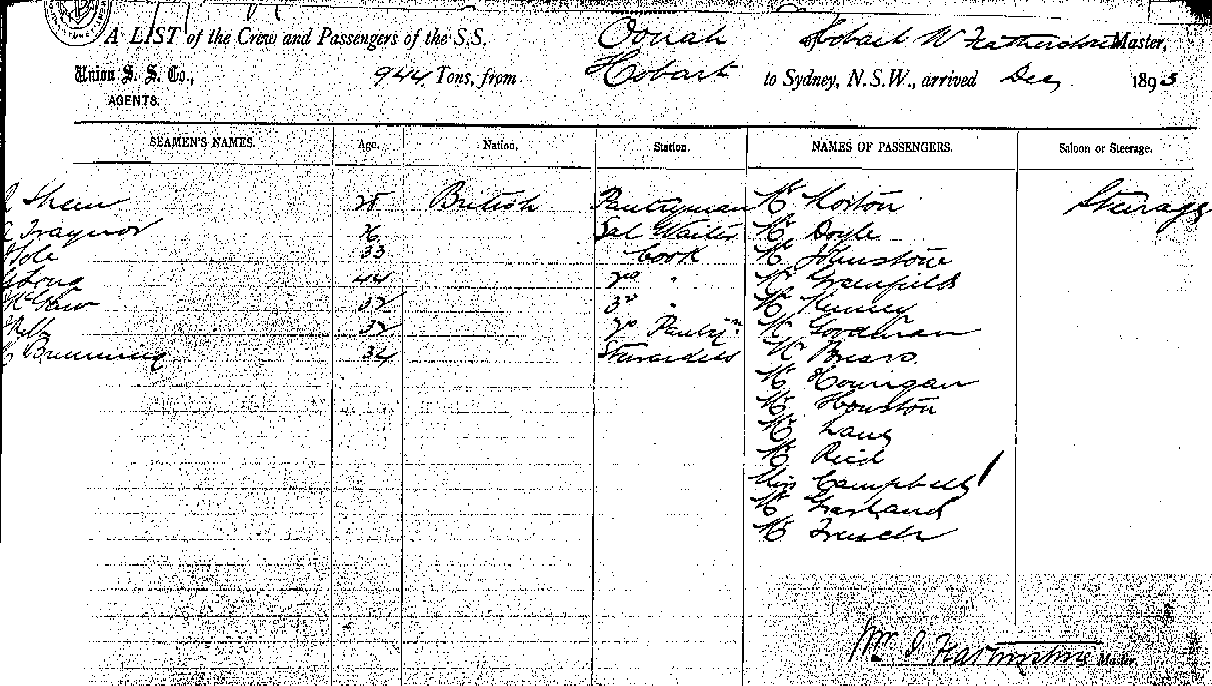 A LIST of the Crew and Passengers of the S.S. Oonah Hobart W Featherstone Master,
Union S. S. Co., 944 Tons, from Hobart to Sydney, N.S.W., arrived Dec 1895
AGENTS.
SEAMEN'S NAMES. Age. Nation. Station. NAMES OF PASSENGERS. Saloon or Steerage.
Shaw 25 British Pantryman Mr Morton Steerage
Traynor Sal Waiter Mr Doyle
Cole 33 Cook Mr Johnstone
Long 44 2nd " Mr Greenfield
McGaw 3rd " Mr Kenney
2nd Pantryn Mr Goodman
Brunning 34 Stewardess Mr Briars
Mr Hourigan
Mr Houston
Mr Lang
Mr Reid
Miss Campbell
Mr Garland
Mr French
Master